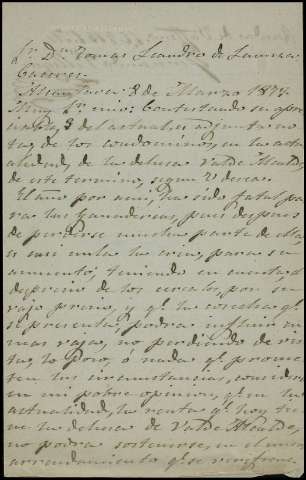 Sr. Dn. Tomas Leandro de
Caceres.
Alcantara 8 de Marzo 1874.
Muy Sr. mio: Contestando su apre
ciable, 3 del actual, adjunto no
ta, de los condominos, en la actu
alidad, de la dehesa Valde Alcalde,
de este termino, segun V. desea.
El año por aqui, ha sido fatal pa
ra las ganaderias, pues despues
de perderse mucha parte de ellas,
es casi nula la cria, para su
aumento, teniendo en cuenta el
desprecio de los cereales, por su
vajo precio, y qe. la cosecha qe.
se presenta, podrá sufrir
mas vaja, no perdiendo de vis
ta, lo poco, ó nada qe. prome
ten las circunstancias, considero
en mi pobre opinion, qe. en la
actualidad, la renta qe. hoy tie
ne la dehesa de Valde Alcalde,
no podrá sostenerse, en el nuevo
arrendamiento qe. se